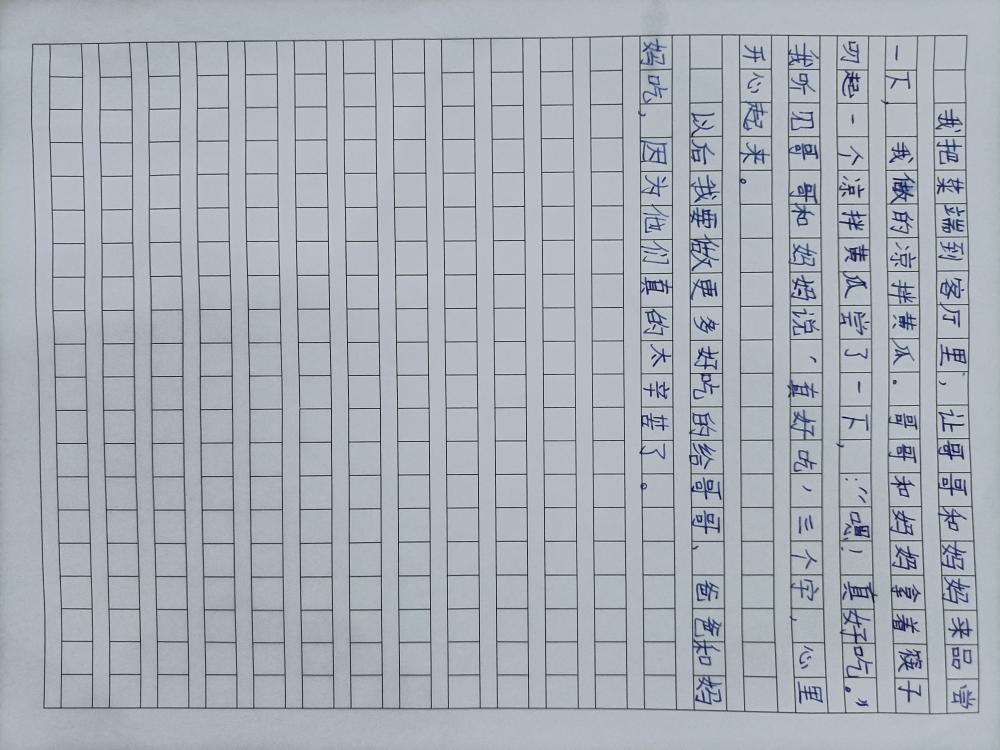 我把菜端到客厅里，让哥哥和妈妈来品尝
一下，我做的凉拌黄瓜。哥哥和妈妈拿着筷子
叨起一个凉拌黄瓜尝了一下，：“嘿！真好吃。”
我听见哥哥和妈妈说‘真好吃’三个字，心里
开心起来。
以后我要做更多好吃的给哥哥、爸爸和妈
妈吃，因为他们真的太辛苦了。